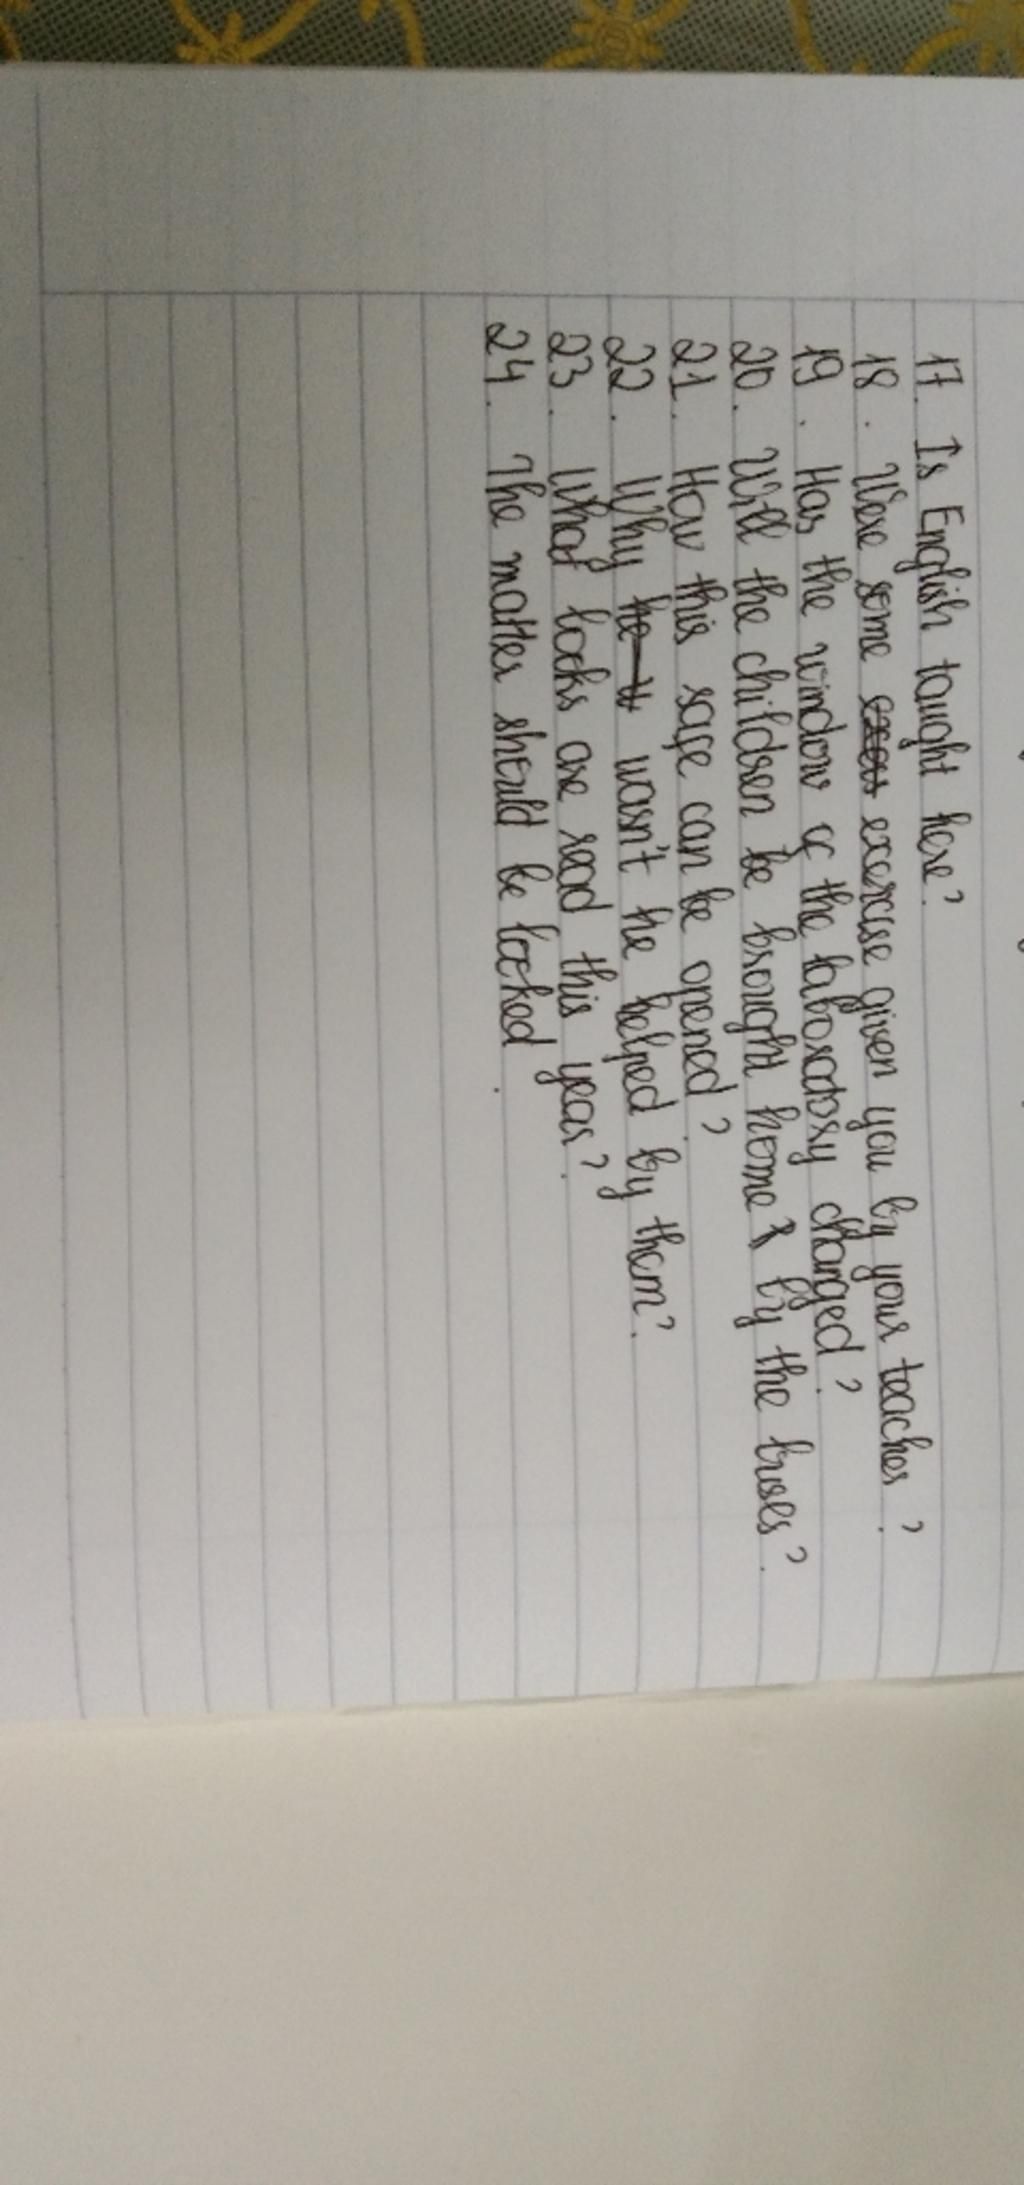 17. Is English taught here?
18. Were some exercise given you by your teacher?
19. Has the window of the laboratory changed?
20. Will the children be brought home by the buses?
21. How this safe can be opened?
22. Why wasn't he helped by them?
23. What books are read this year?
24. The matter should be looked.